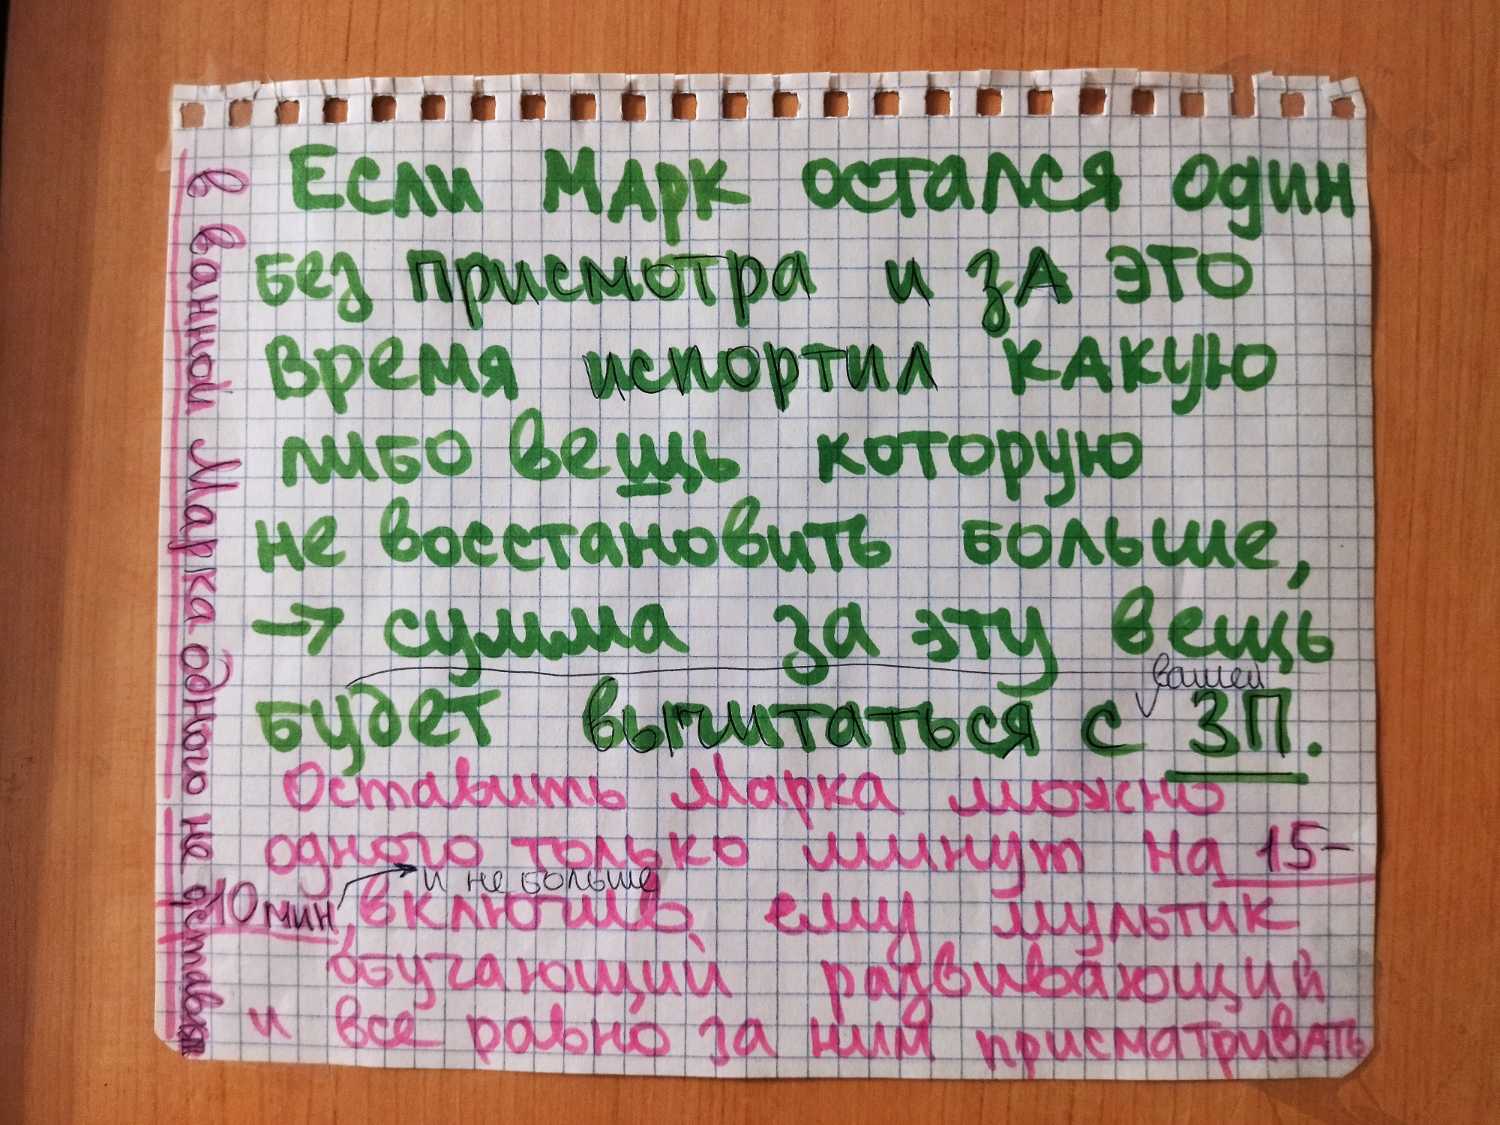 Если Марк остался один
без присмотра и за это
время испортил какую
либо вещь которую
не восстановить больше,
→ сумма за эту вещь
вашей
будет вычитаться с ЗП.
Оставить Марка можно
одного только минут на 15-
и не больше
10 мин, включив ему мультик
обучающий развивающий
и все равно за ним присматривать
в ванной Марка одного не оставляя